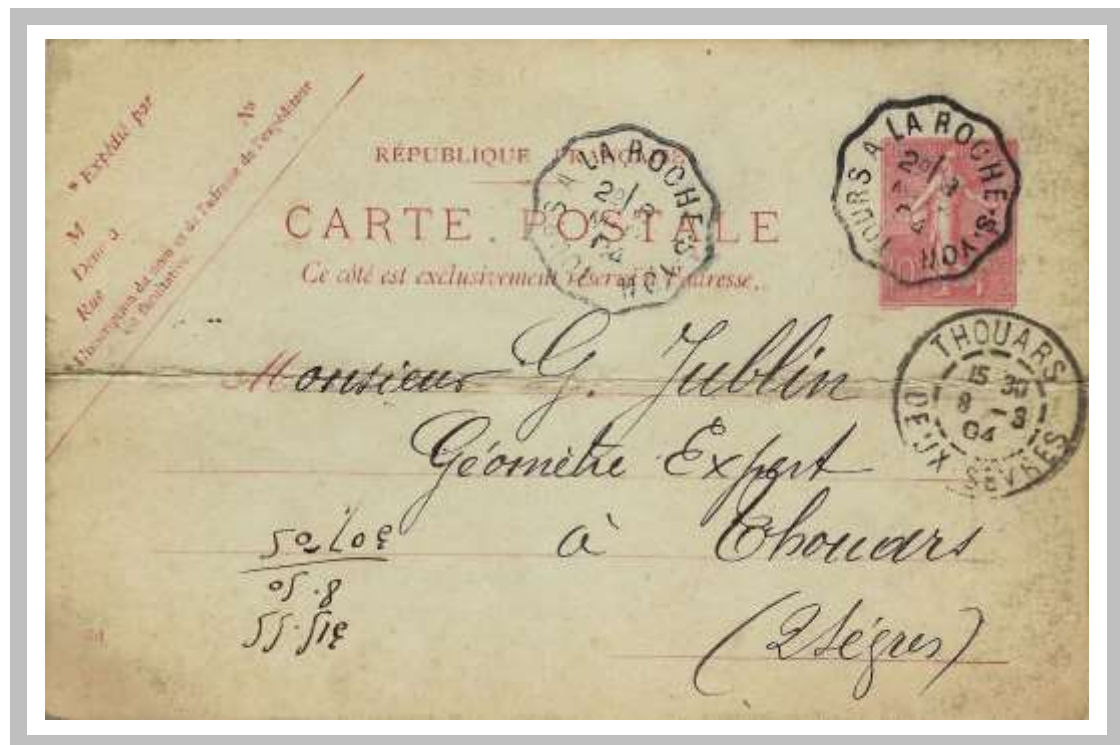 * Expédié par
M
Dem^t à
Rue
N°
* L'inscription du nom et de l'adresse de l'expéditeur
est facultative.
RÉPUBLIQUE FRANÇAISE
CARTE POSTALE
Ce côté est exclusivement réservé à l'adresse.
TOURS A LA ROCHE-S-YON
TOURS A LA ROCHE-S-YON
THOUARS
15 30
8 -3
04
DEUX-SÈVRES
Monsieur G. Jublin
Géomètre Expert
à Thouars
(2 Sèvres)